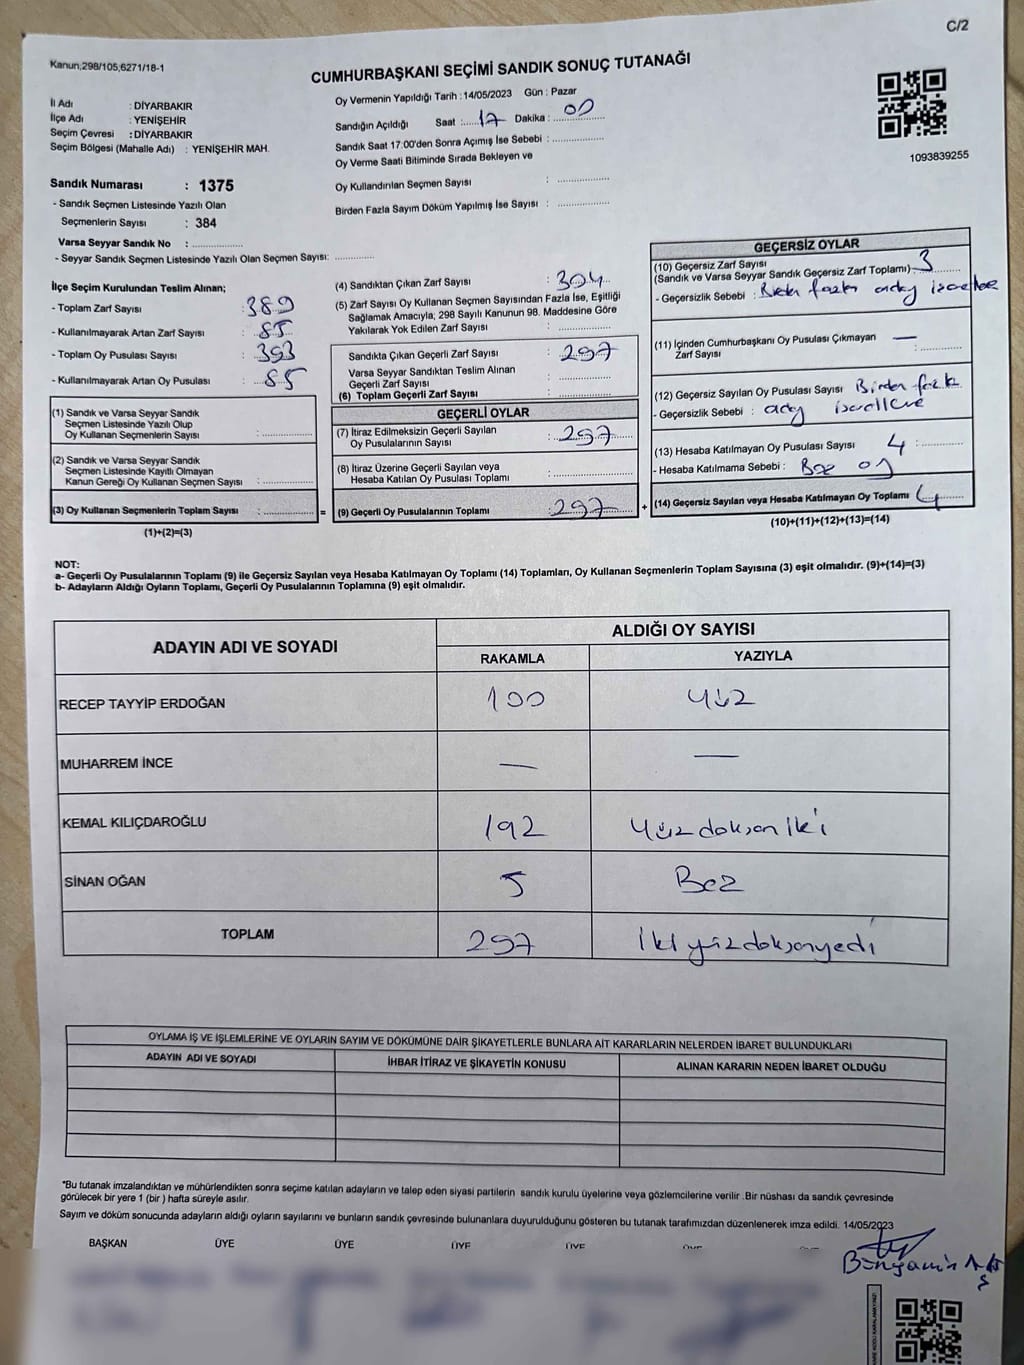 C/2
Kanun;298/105,6271/18-1
CUMHURBAŞKANI SEÇİMİ SANDIK SONUÇ TUTANAĞI
İl Adı : DİYARBAKIR
İlçe Adı : YENİŞEHİR
Seçim Çevresi : DİYARBAKIR
Seçim Bölgesi (Mahalle Adı) : YENİŞEHİR MAH.
Oy Vermenin Yapıldığı Tarih : 14/05/2023 Gün : Pazar
Sandığın Açıldığı Saat : 17 Dakika : 00
Sandık Saat 17:00'den Sonra Açımış İse Sebebi :
Oy Verme Saati Bitiminde Sırada Bekleyen ve
Oy Kullandırılan Seçmen Sayısı :
Birden Fazla Sayım Döküm Yapılmış İse Sayısı :
1093839255
Sandık Numarası : 1375
- Sandık Seçmen Listesinde Yazılı Olan
Seçmenlerin Sayısı : 384
Varsa Seyyar Sandık No :
- Seyyar Sandık Seçmen Listesinde Yazılı Olan Seçmen Sayısı:
İlçe Seçim Kurulundan Teslim Alınan;
- Toplam Zarf Sayısı : 389
- Kullanılmayarak Artan Zarf Sayısı : 85
- Toplam Oy Pusulası Sayısı : 393
- Kullanılmayarak Artan Oy Pusulası : 85
(1) Sandık ve Varsa Seyyar Sandık
Seçmen Listesinde Yazılı Olup
Oy Kullanan Seçmenlerin Sayısı :
(2) Sandık ve Varsa Seyyar Sandık
Seçmen Listesinde Kayıtlı Olmayan
Kanun Gereği Oy Kullanan Seçmen Sayısı :
(3) Oy Kullanan Seçmenlerin Toplam Sayısı : =
(1)+(2)=(3)
(4) Sandıktan Çıkan Zarf Sayısı : 304
(5) Zarf Sayısı Oy Kullanan Seçmen Sayısından Fazla İse, Eşitliği
Sağlamak Amacıyla; 298 Sayılı Kanunun 98. Maddesine Göre
Yakılarak Yok Edilen Zarf Sayısı :
Sandıkta Çıkan Geçerli Zarf Sayısı : 297
Varsa Seyyar Sandıktan Teslim Alınan
Geçerli Zarf Sayısı :
(6) Toplam Geçerli Zarf Sayısı :
GEÇERLİ OYLAR
(7) İtiraz Edilmeksizin Geçerli Sayılan
Oy Pusulalarının Sayısı : 297
(8) İtiraz Üzerine Geçerli Sayılan veya
Hesaba Katılan Oy Pusulası Toplamı :
(9) Geçerli Oy Pusulalarının Toplamı : 297 +
GEÇERSİZ OYLAR
(10) Geçersiz Zarf Sayısı
(Sandık ve Varsa Seyyar Sandık Geçersiz Zarf Toplamı) : 3
- Geçersizlik Sebebi : Birden fazla aday
(11) İçinden Cumhurbaşkanı Oy Pusulası Çıkmayan
Zarf Sayısı : —
(12) Geçersiz Sayılan Oy Pusulası Sayısı Birden fazla
- Geçersizlik Sebebi : aday
(13) Hesaba Katılmayan Oy Pusulası Sayısı : 4
- Hesaba Katılmama Sebebi : Boş oy
(14) Geçersiz Sayılan veya Hesaba Katılmayan Oy Toplamı : 4
(10)+(11)+(12)+(13)=(14)
NOT:
a- Geçerli Oy Pusulalarının Toplamı (9) ile Geçersiz Sayılan veya Hesaba Katılmayan Oy Toplamı (14) Toplamları, Oy Kullanan Seçmenlerin Toplam Sayısına (3) eşit olmalıdır. (9)+(14)=(3)
b- Adayların Aldığı Oyların Toplamı, Geçerli Oy Pusulalarının Toplamına (9) eşit olmalıdır.
ADAYIN ADI VE SOYADI ALDIĞI OY SAYISI
RAKAMLA YAZIYLA
RECEP TAYYİP ERDOĞAN 100 Yüz
MUHARREM İNCE — —
KEMAL KILIÇDAROĞLU 192 Yüz doksan iki
SİNAN OĞAN 5 Beş
TOPLAM 297 İki yüz doksan yedi
OYLAMA İŞ VE İŞLEMLERİNE VE OYLARIN SAYIM VE DÖKÜMÜNE DAİR ŞİKAYETLERLE BUNLARA AİT KARARLARIN NELERDEN İBARET BULUNDUKLARI
ADAYIN ADI VE SOYADI İHBAR İTİRAZ VE ŞİKAYETİN KONUSU ALINAN KARARIN NEDEN İBARET OLDUĞU
*Bu tutanak imzalandıktan ve mühürlendikten sonra seçime katılan adayların ve talep eden siyasi partilerin sandık kurulu üyelerine veya gözlemcilerine verilir .Bir nüshası da sandık çevresinde
görülecek bir yere 1 (bir ) hafta süreyle asılır.
Sayım ve döküm sonucunda adayların aldığı oyların sayılarını ve bunların sandık çevresinde bulunanlara duyurulduğunu gösteren bu tutanak tarafımızdan düzenlenerek imza edildi. 14/05/2023
BAŞKAN ÜYE ÜYE ÜYE ÜYE
Bünyamin